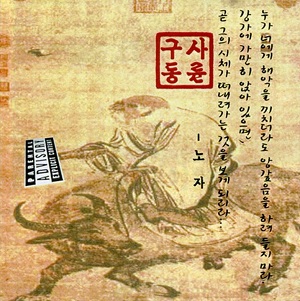 누가 너에게 해악을 끼치더라도 앙갚음을 하려 들지 마라.
강가에 가만히 앉아 있으면,
곧 그의 시체가 떠내려가는 것을 보게 되리라...
- 노 자
사륜
구동
PARENTAL
ADVISORY
EXPLICIT CONTENT